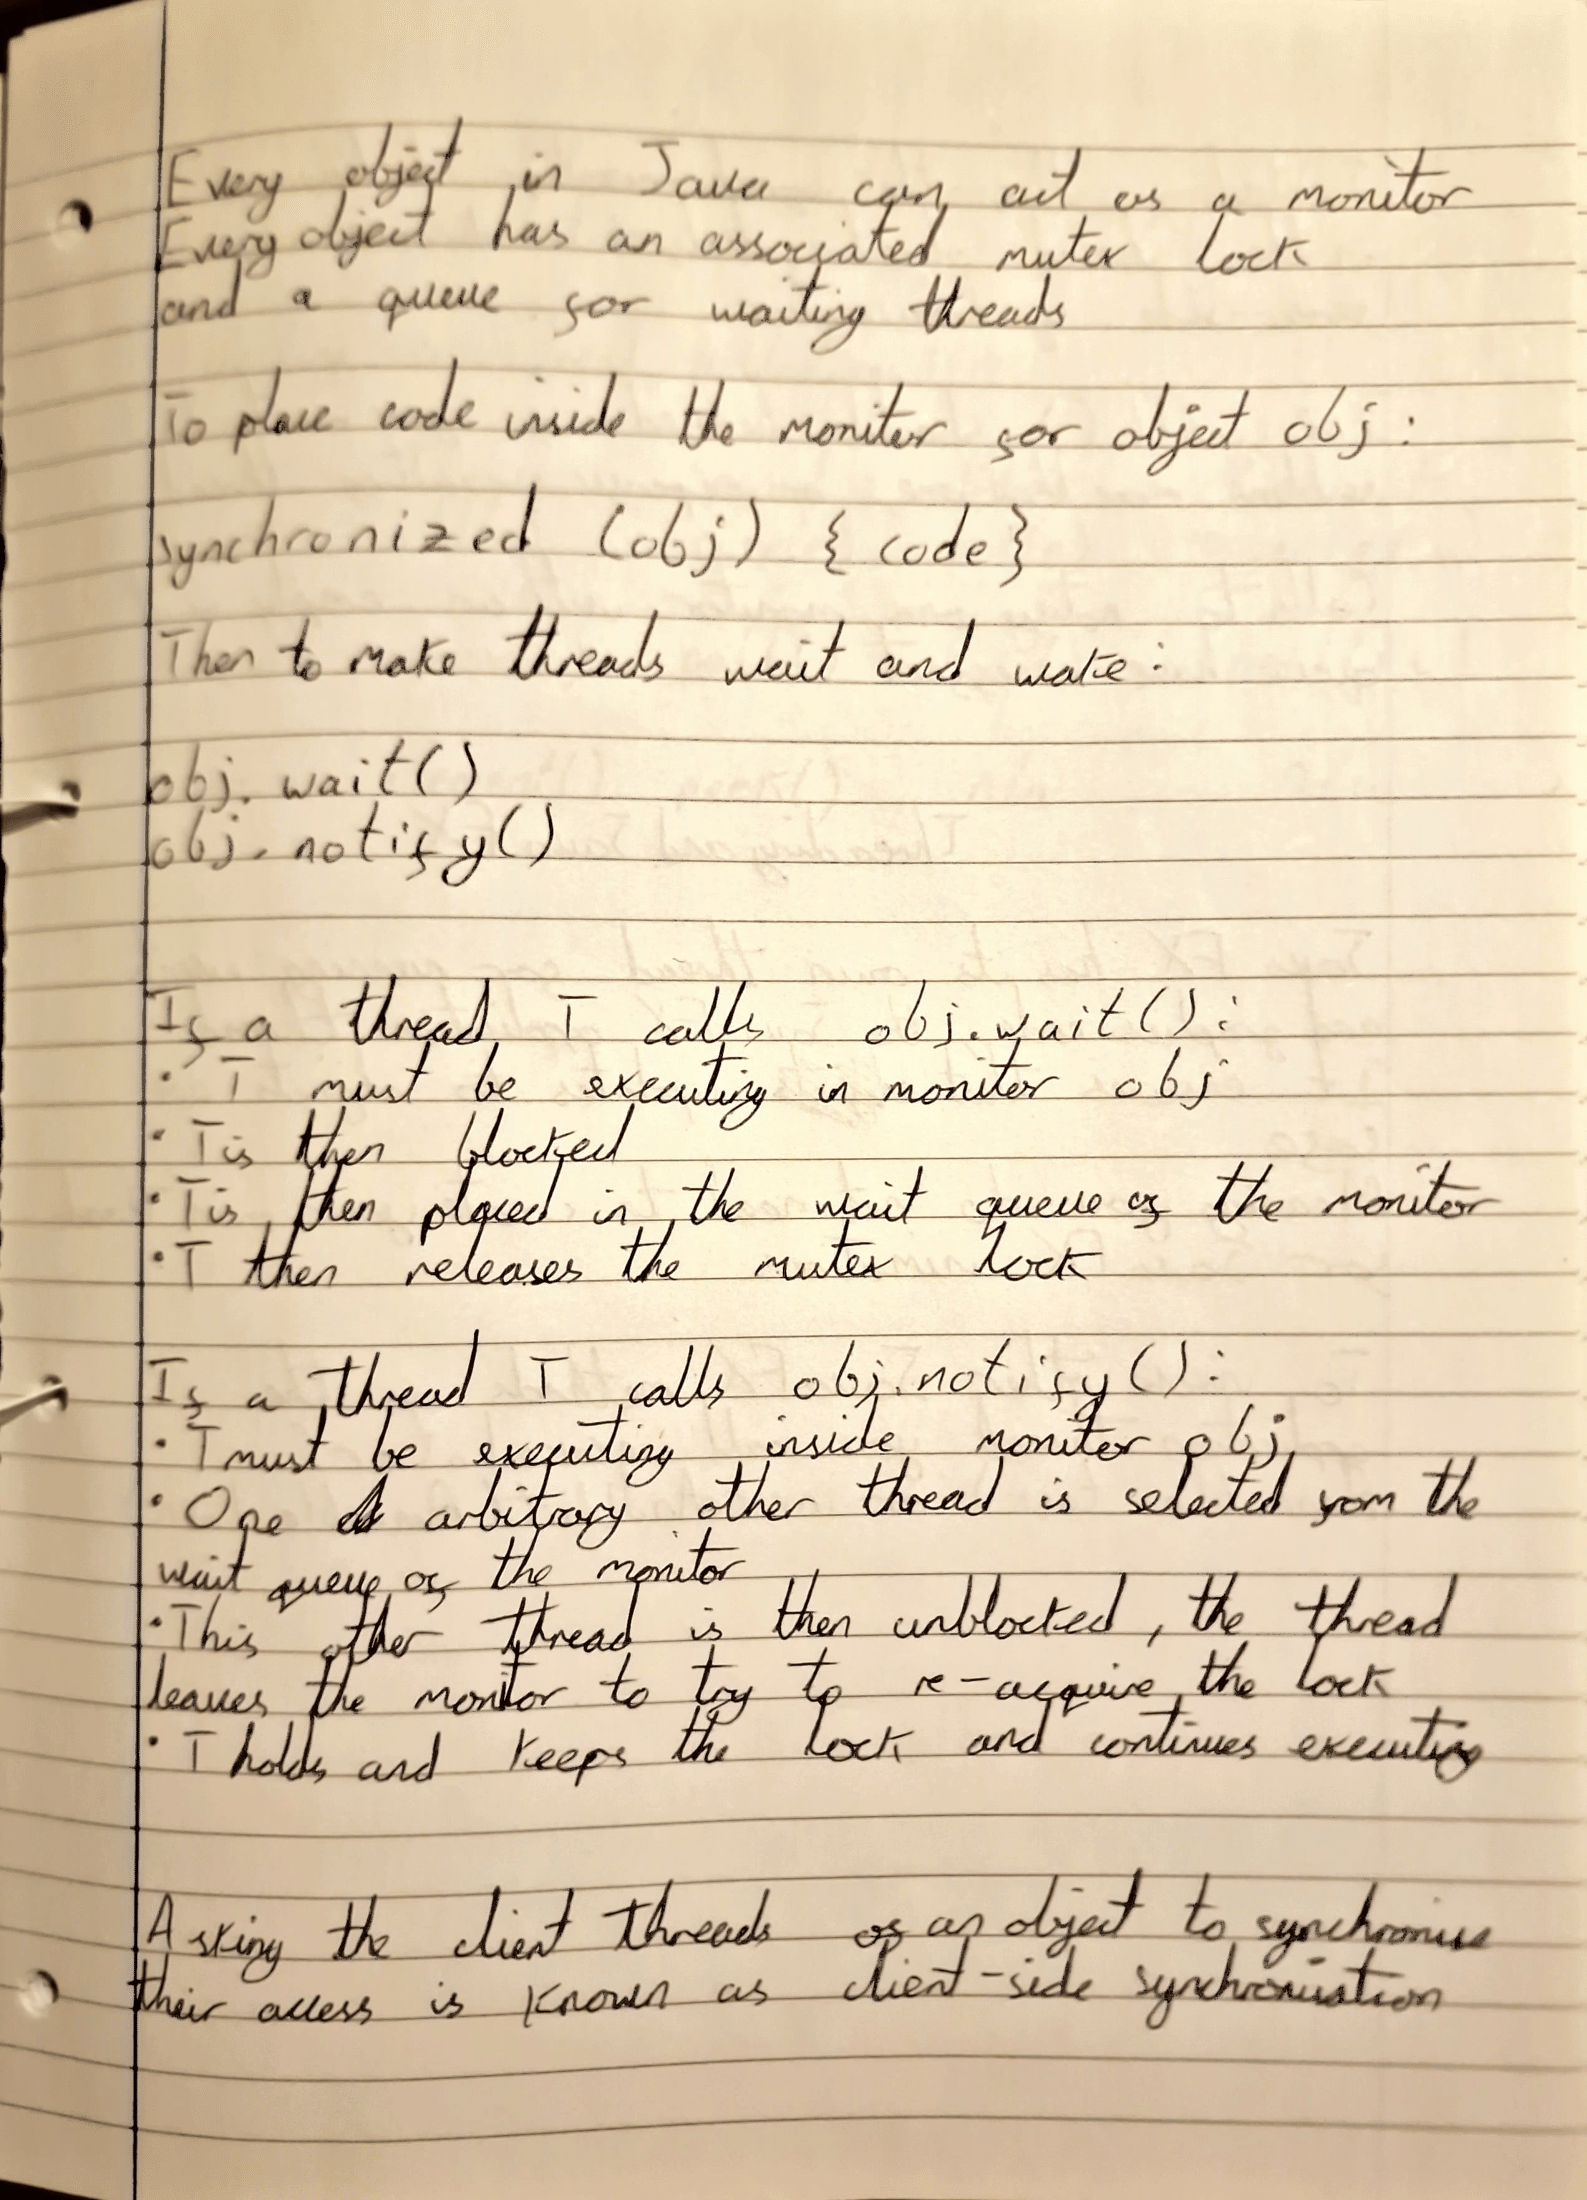 Every object in Java can act as a monitor
Every object has an associated mutex lock
and a queue for waiting threads
To place code inside the monitor for object obj:
synchronized (obj) { code }
Then to make threads wait and wake:
obj.wait()
obj.notify()
If a thread T calls obj.wait():
· T must be executing in monitor obj
· T is then blocked
· T is then placed in the wait queue of the monitor
· T then releases the mutex lock
If a thread T calls obj.notify():
· T must be executing inside monitor obj
· One arbitrary other thread is selected from the
wait queue of the monitor
· This other thread is then unblocked, the thread
leaves the monitor to try to re-acquire the lock
· T holds and keeps the lock and continues executing
Asking the client threads of an object to synchronise
their access is known as client-side synchronisation